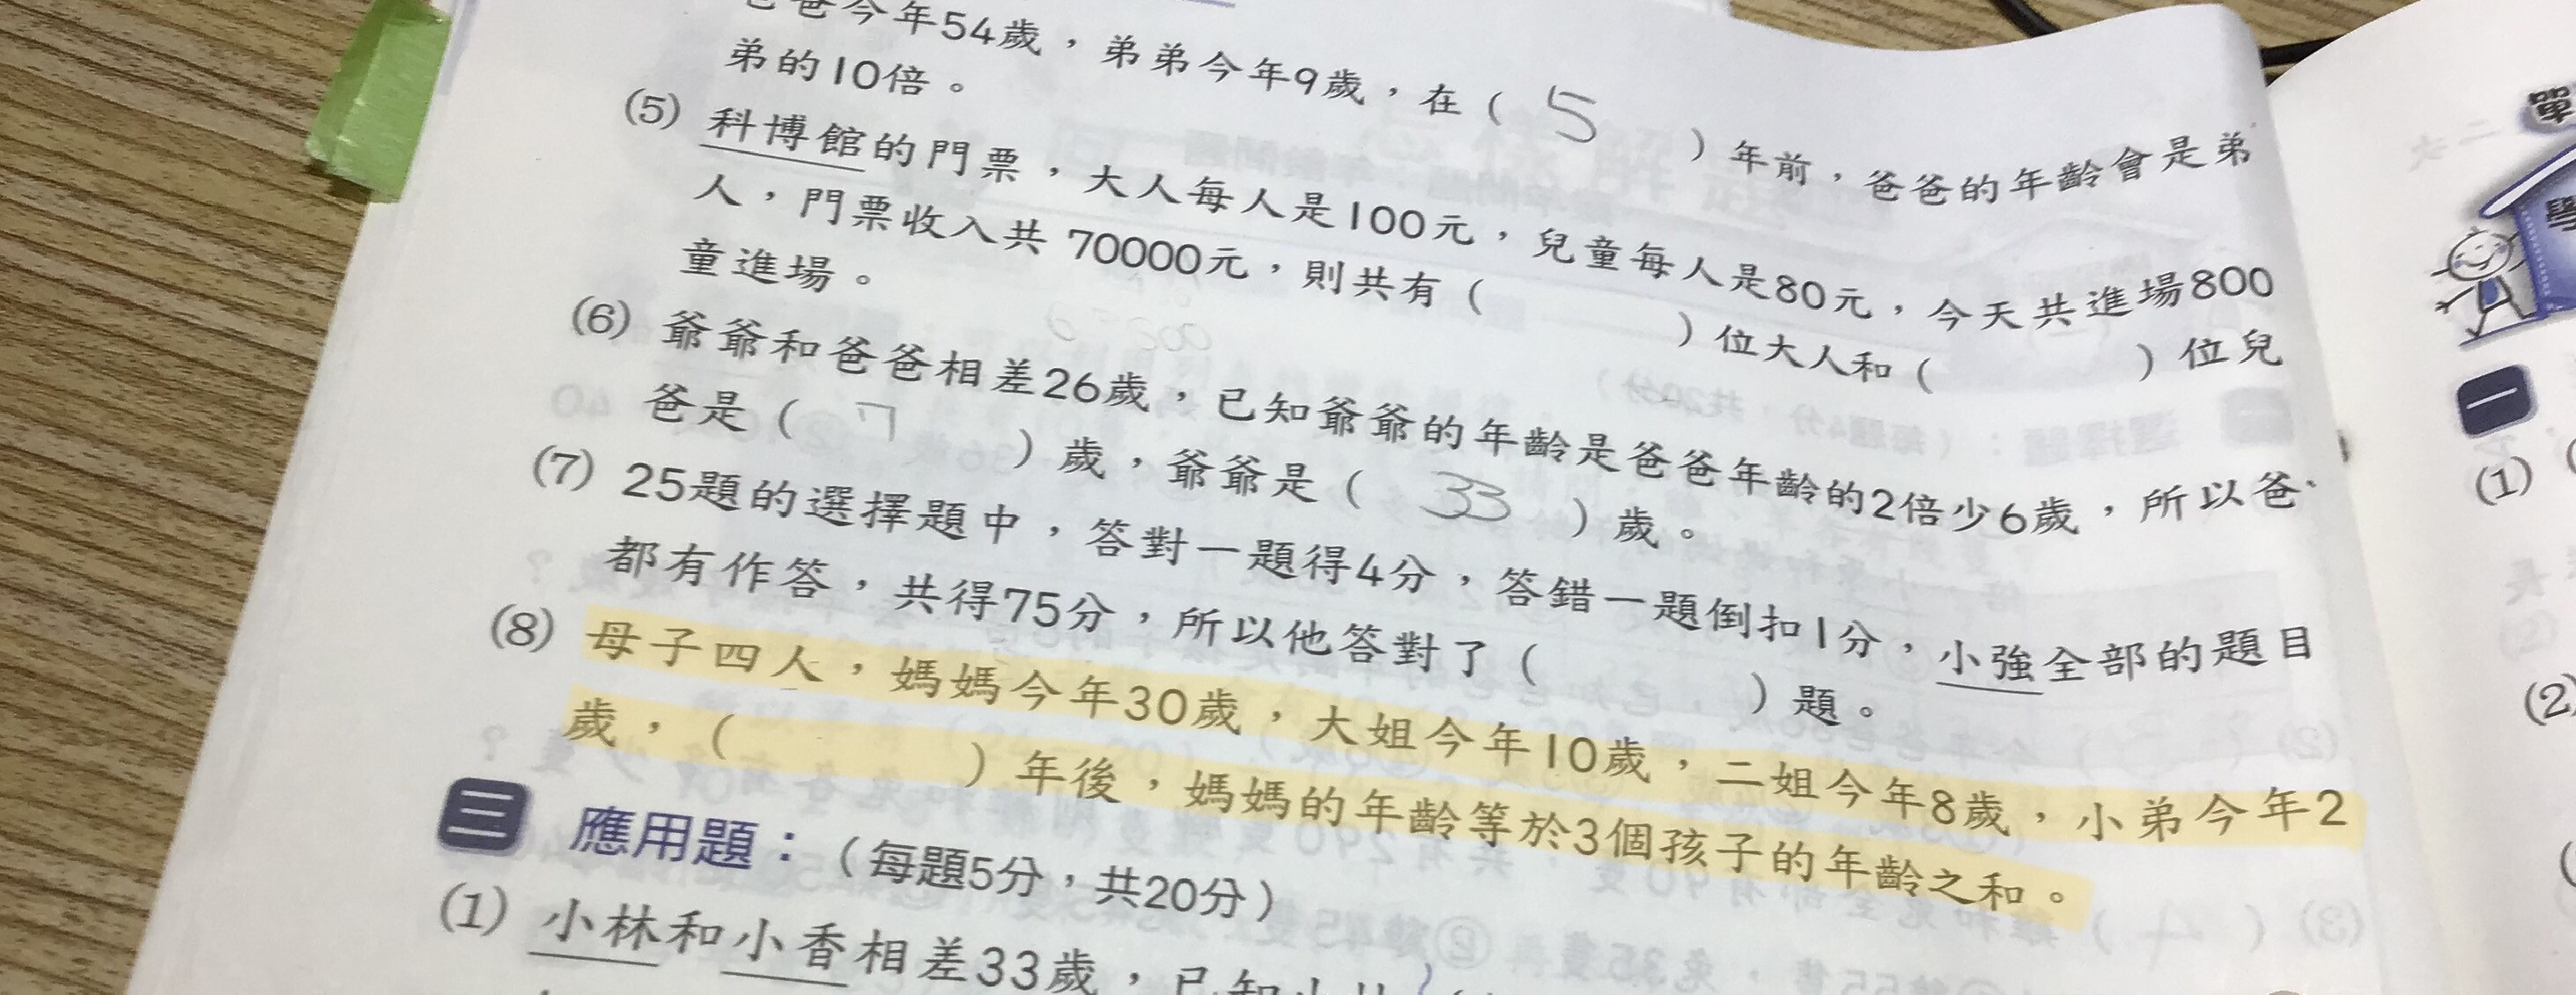 爸爸今年54歲，弟弟今年9歲，在（ 5 ）年前，爸爸的年齡會是弟
弟的10倍。
(5) 科博館的門票，大人每人是100元，兒童每人是80元，今天共進場800
人，門票收入共70000元，則共有（ ）位大人和（ ）位兒
童進場。
(6) 爺爺和爸爸相差26歲，已知爺爺的年齡是爸爸年齡的2倍少6歲，所以爸
爸是（ 7 ）歲，爺爺是（ 33 ）歲。
(7) 25題的選擇題中，答對一題得4分，答錯一題倒扣1分，小強全部的題目
都有作答，共得75分，所以他答對了（ ）題。
(8) 母子四人，媽媽今年30歲，大姐今年10歲，二姐今年8歲，小弟今年2
歲，（ ）年後，媽媽的年齡等於3個孩子的年齡之和。
三 應用題：（每題5分，共20分）
(1) 小林和小香相差33歲，已知小
單
學
一
(1)
(2)